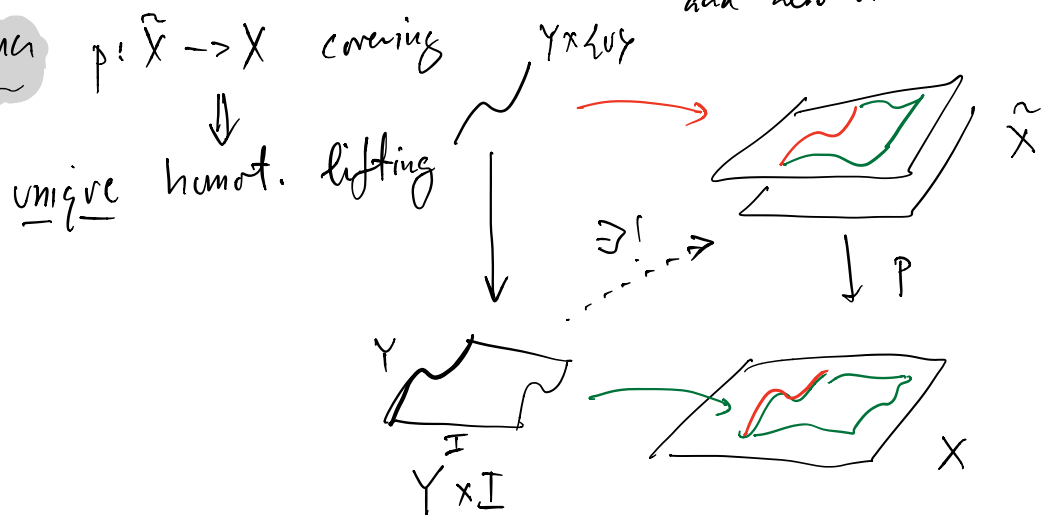 p: X̃ -> X covering
Y×{0}
⇓
unique homot. lifting
X̃
∃!
p
Y
I
Y × I
X